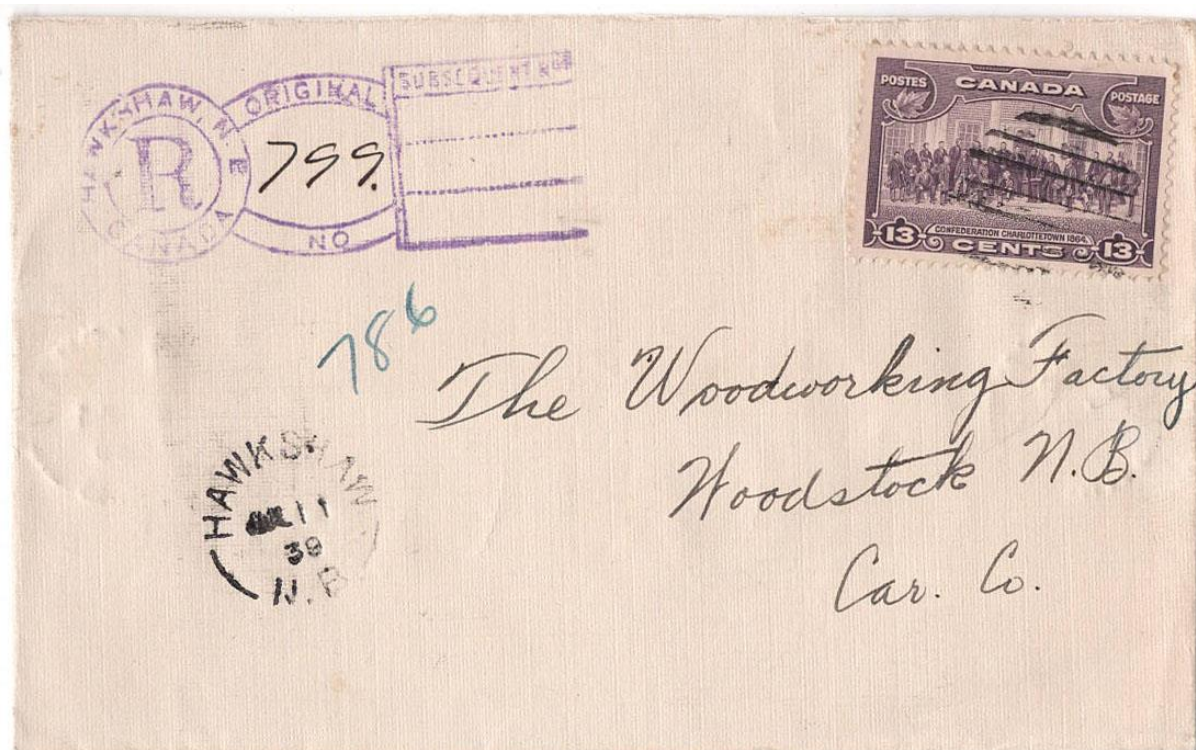 HAWKSHAW, N.B
R
CANADA
ORIGINAL
799.
NO
SUBSEQUENT NOS
POSTES
CANADA
POSTAGE
CONFEDERATION CHARLOTTETOWN 1864
13 CENTS 13
786
The Woodworking Factory
Woodstock N.B.
Car. Co.
HAWKSHAW
11
39
N.B